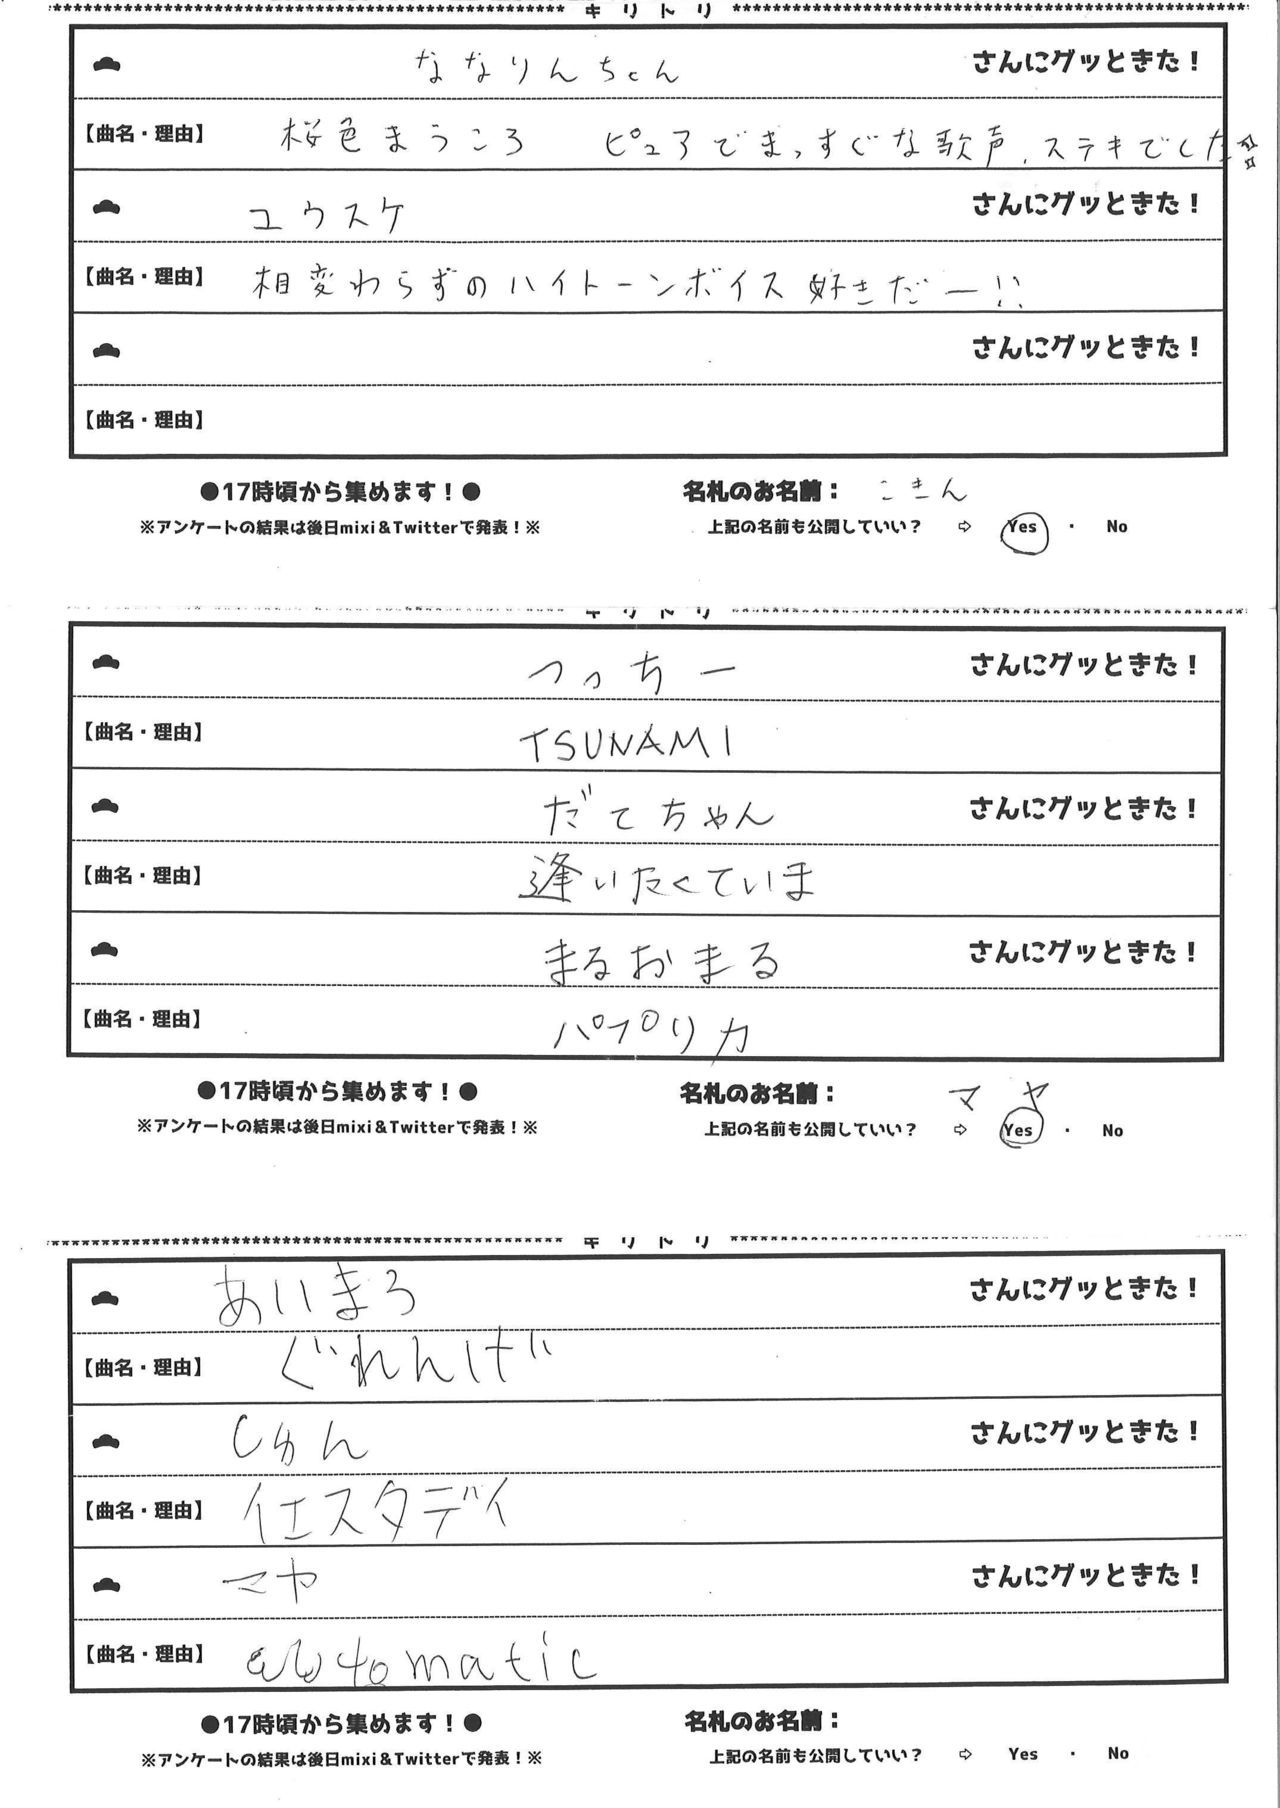 キリトリ
ななりんちゃん さんにグッときた！
【曲名・理由】 桜色まうころ ピュアでまっすぐな歌声、ステキでした
ユウスケ さんにグッときた！
【曲名・理由】 相変わらずのハイトーンボイス好きだー!!
さんにグッときた！
【曲名・理由】
●17時頃から集めます！● 名札のお名前： こきん
※アンケートの結果は後日mixi＆Twitterで発表！※ 上記の名前も公開していい？ ⇨ Yes ・ No
キリトリ
つっちー さんにグッときた！
【曲名・理由】 TSUNAMI
だてちゃん さんにグッときた！
【曲名・理由】 逢いたくていま
まるおまる さんにグッときた！
【曲名・理由】 パプリカ
●17時頃から集めます！● 名札のお名前： マヤ
※アンケートの結果は後日mixi＆Twitterで発表！※ 上記の名前も公開していい？ ⇨ Yes ・ No
キリトリ
あいまろ さんにグッときた！
【曲名・理由】 ぐれんげ
しゅん さんにグッときた！
【曲名・理由】 イエスタデイ
マヤ さんにグッときた！
【曲名・理由】 automatic
●17時頃から集めます！● 名札のお名前：
※アンケートの結果は後日mixi＆Twitterで発表！※ 上記の名前も公開していい？ ⇨ Yes ・ No